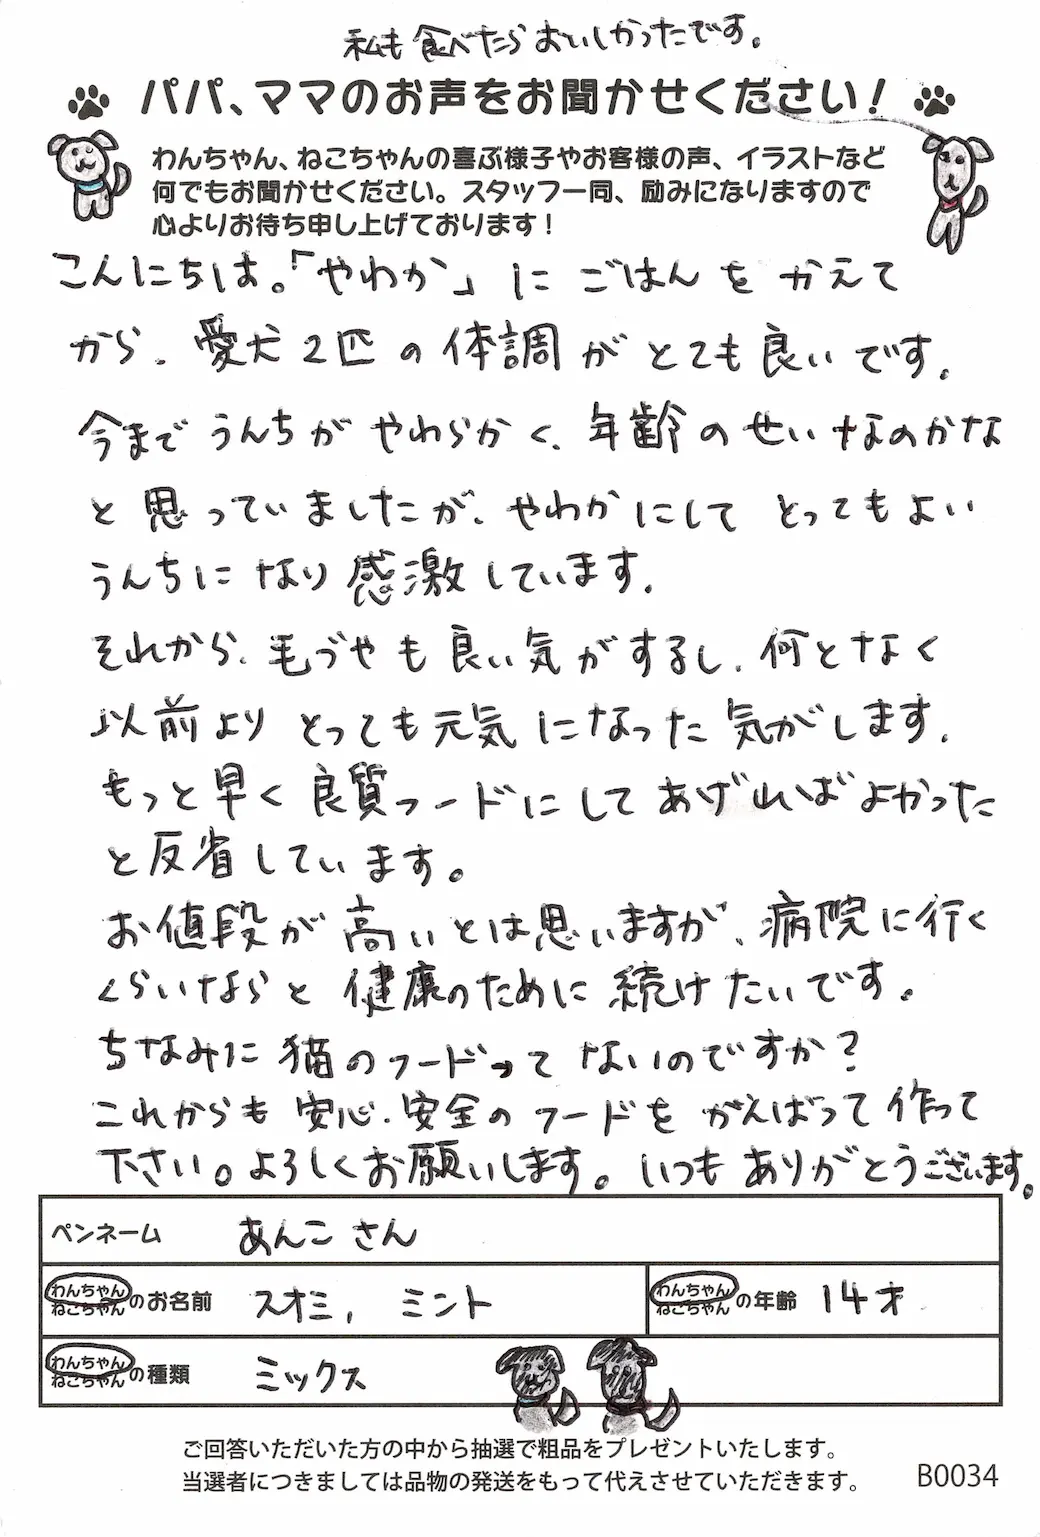 私も食べたらおいしかったです。
パパ、ママのお声をお聞かせください!
わんちゃん、ねこちゃんの喜ぶ様子やお客様の声、イラストなど
何でもお聞かせください。スタッフ一同、励みになりますので
心よりお待ち申し上げております!
こんにちは。「やわか」にごはんをかえて
から、愛犬2匹の体調がとても良いです。
今までうんちがやわらかく、年齢のせいなのかな
と思っていましたが、やわかにしてとってもよい
うんちになり感激しています。
それから、毛づやも良い気がするし、何となく
以前よりとっても元気になった気がします。
もっと早く良質フードにしてあげればよかった
と反省しています。
お値段が高いとは思いますが、病院に行く
くらいならと健康のために続けたいです。
ちなみに猫のフードってないのですか?
これからも安心、安全のフードをがんばって作って
下さい。よろしくお願いします。いつもありがとうございます。
ペンネーム あんこさん
わんちゃん ねこちゃん のお名前 スオミ, ミント わんちゃん ねこちゃん の年齢 14才
わんちゃん ねこちゃん の種類 ミックス
ご回答いただいた方の中から抽選で粗品をプレゼントいたします。
当選者につきましては品物の発送をもって代えさせていただきます。 B0034